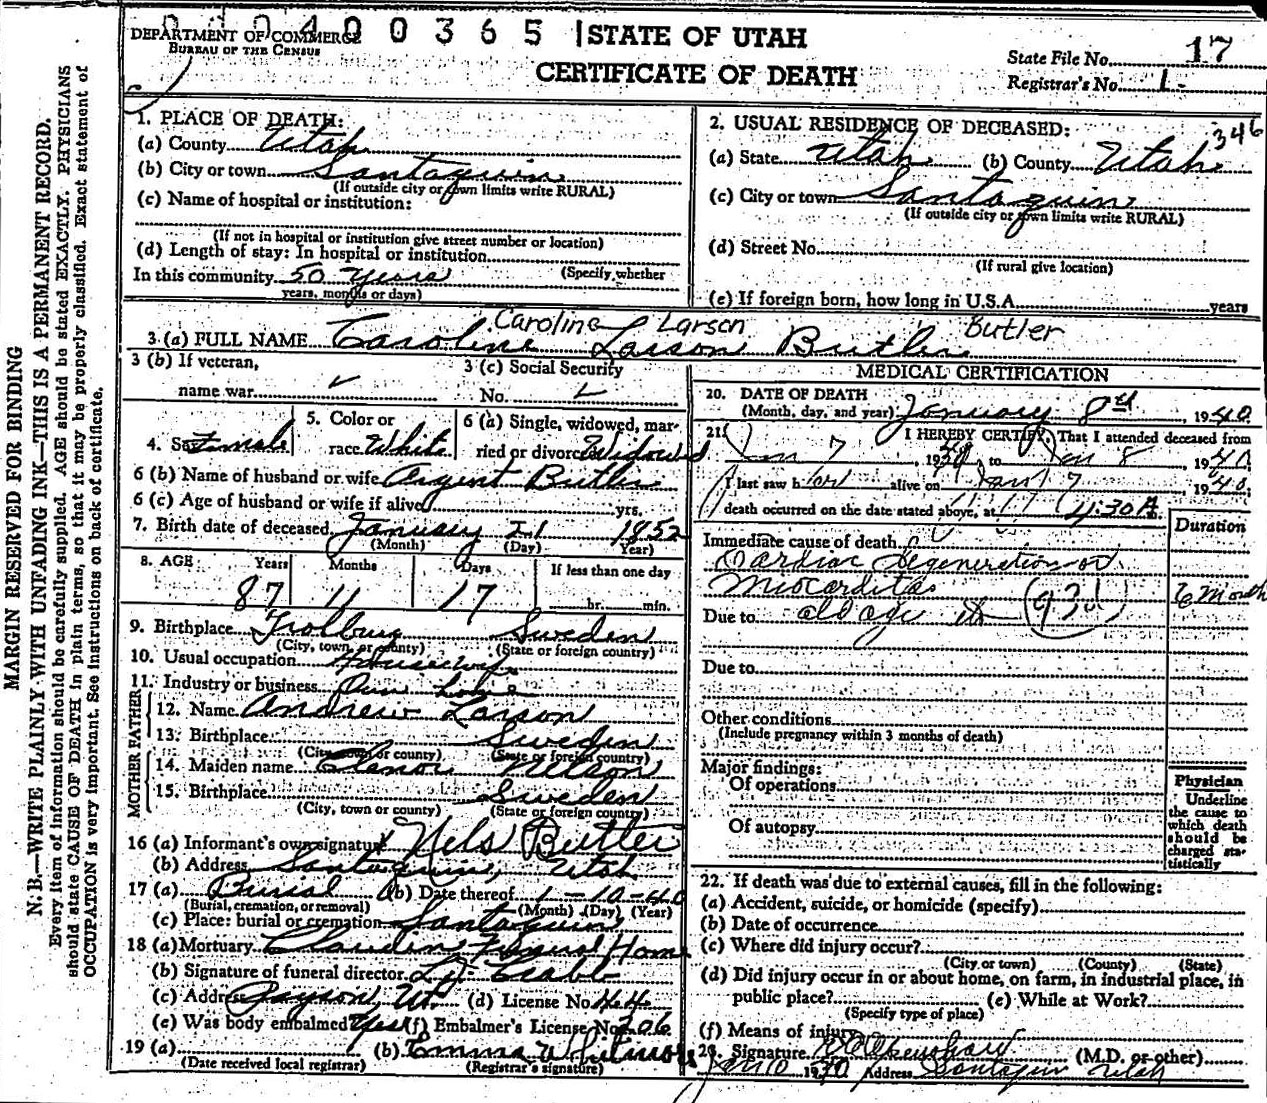 MARGIN RESERVED FOR BINDING
N. B.—WRITE PLAINLY WITH UNFADING INK—THIS IS A PERMANENT RECORD.
Every item of information should be carefully supplied. AGE should be stated EXACTLY. PHYSICIANS
should state CAUSE OF DEATH in plain terms, so that it may be properly classified. Exact statement of
OCCUPATION is very important. See instructions on back of certificate.
DEPARTMENT OF COMMERCE
BUREAU OF THE CENSUS
0 0 3 6 5
STATE OF UTAH
CERTIFICATE OF DEATH
State File No. 17
Registrar's No. 1
1. PLACE OF DEATH:
(a) County Utah
(b) City or town Santaquin
(If outside city or town limits write RURAL)
(c) Name of hospital or institution:
(If not in hospital or institution give street number or location)
(d) Length of stay: In hospital or institution
In this community 50 Years (Specify whether
years, months or days)
2. USUAL RESIDENCE OF DECEASED: 346
(a) State Utah (b) County Utah
(c) City or town Santaquin
(If outside city or town limits write RURAL)
(d) Street No.
(If rural give location)
(e) If foreign born, how long in U.S.A. years
Caroline Larson Butler
3 (a) FULL NAME Caroline Larson Butler
3 (b) If veteran,
name war
3 (c) Social Security
No.
4. Sex Female
5. Color or
race White
6 (a) Single, widowed, mar-
ried or divorced Widowed
6 (b) Name of husband or wife Argent Butler
6 (c) Age of husband or wife if alive yrs.
7. Birth date of deceased January 21 1852
(Month) (Day) Year)
8. AGE Years Months Days If less than one day
87 11 17 hr. min.
9. Birthplace Sweden
(City, town, or county) (State or foreign country)
10. Usual occupation Housewife
11. Industry or business Own
FATHER
12. Name Andrew Larson
13. Birthplace Sweden
(City, town or county) (State or foreign country)
MOTHER
14. Maiden name Nelson
15. Birthplace Sweden
(City, town or county) (State or foreign country)
16 (a) Informant's own signature Nels Butler
(b) Address Santaquin, Utah
17 (a) Burial (b) Date thereof 1-10-40
(Burial, cremation, or removal) (Month) (Day) (Year)
(c) Place: burial or cremation Santaquin
18 (a) Mortuary Funeral Home
(b) Signature of funeral director
(c) Address Payson, Ut. (d) License No. 44
(e) Was body embalmed Yes (f) Embalmer's License No. 206
19 (a) (b) Emma
(Date received local registrar) (Registrar's signature)
MEDICAL CERTIFICATION
20. DATE OF DEATH
(Month, day, and year) January 8 1940
21. I HEREBY CERTIFY, That I attended deceased from
Jan 7, 19 to Jan 8 1940
I last saw her alive on Jan 7, 1940
death occurred on the date stated above, at 4:30 A m.
Duration
Immediate cause of death
Cardiac degeneration or
Miocarditas 6 Month
Due to old age 93d
Due to
Other conditions
(Include pregnancy within 3 months of death)
Major findings:
Of operations
Of autopsy
Physician
Underline
the cause to
which death
should be
charged sta-
tistically
22. If death was due to external causes, fill in the following:
(a) Accident, suicide, or homicide (specify)
(b) Date of occurrence
(c) Where did injury occur?
(City or town) (County) (State)
(d) Did injury occur in or about home, on farm, in industrial place, in
public place? (e) While at Work?
(Specify type of place)
(f) Means of injury
23. Signature (M.D. or other)
Jan 10 1940 Address Santaquin Utah